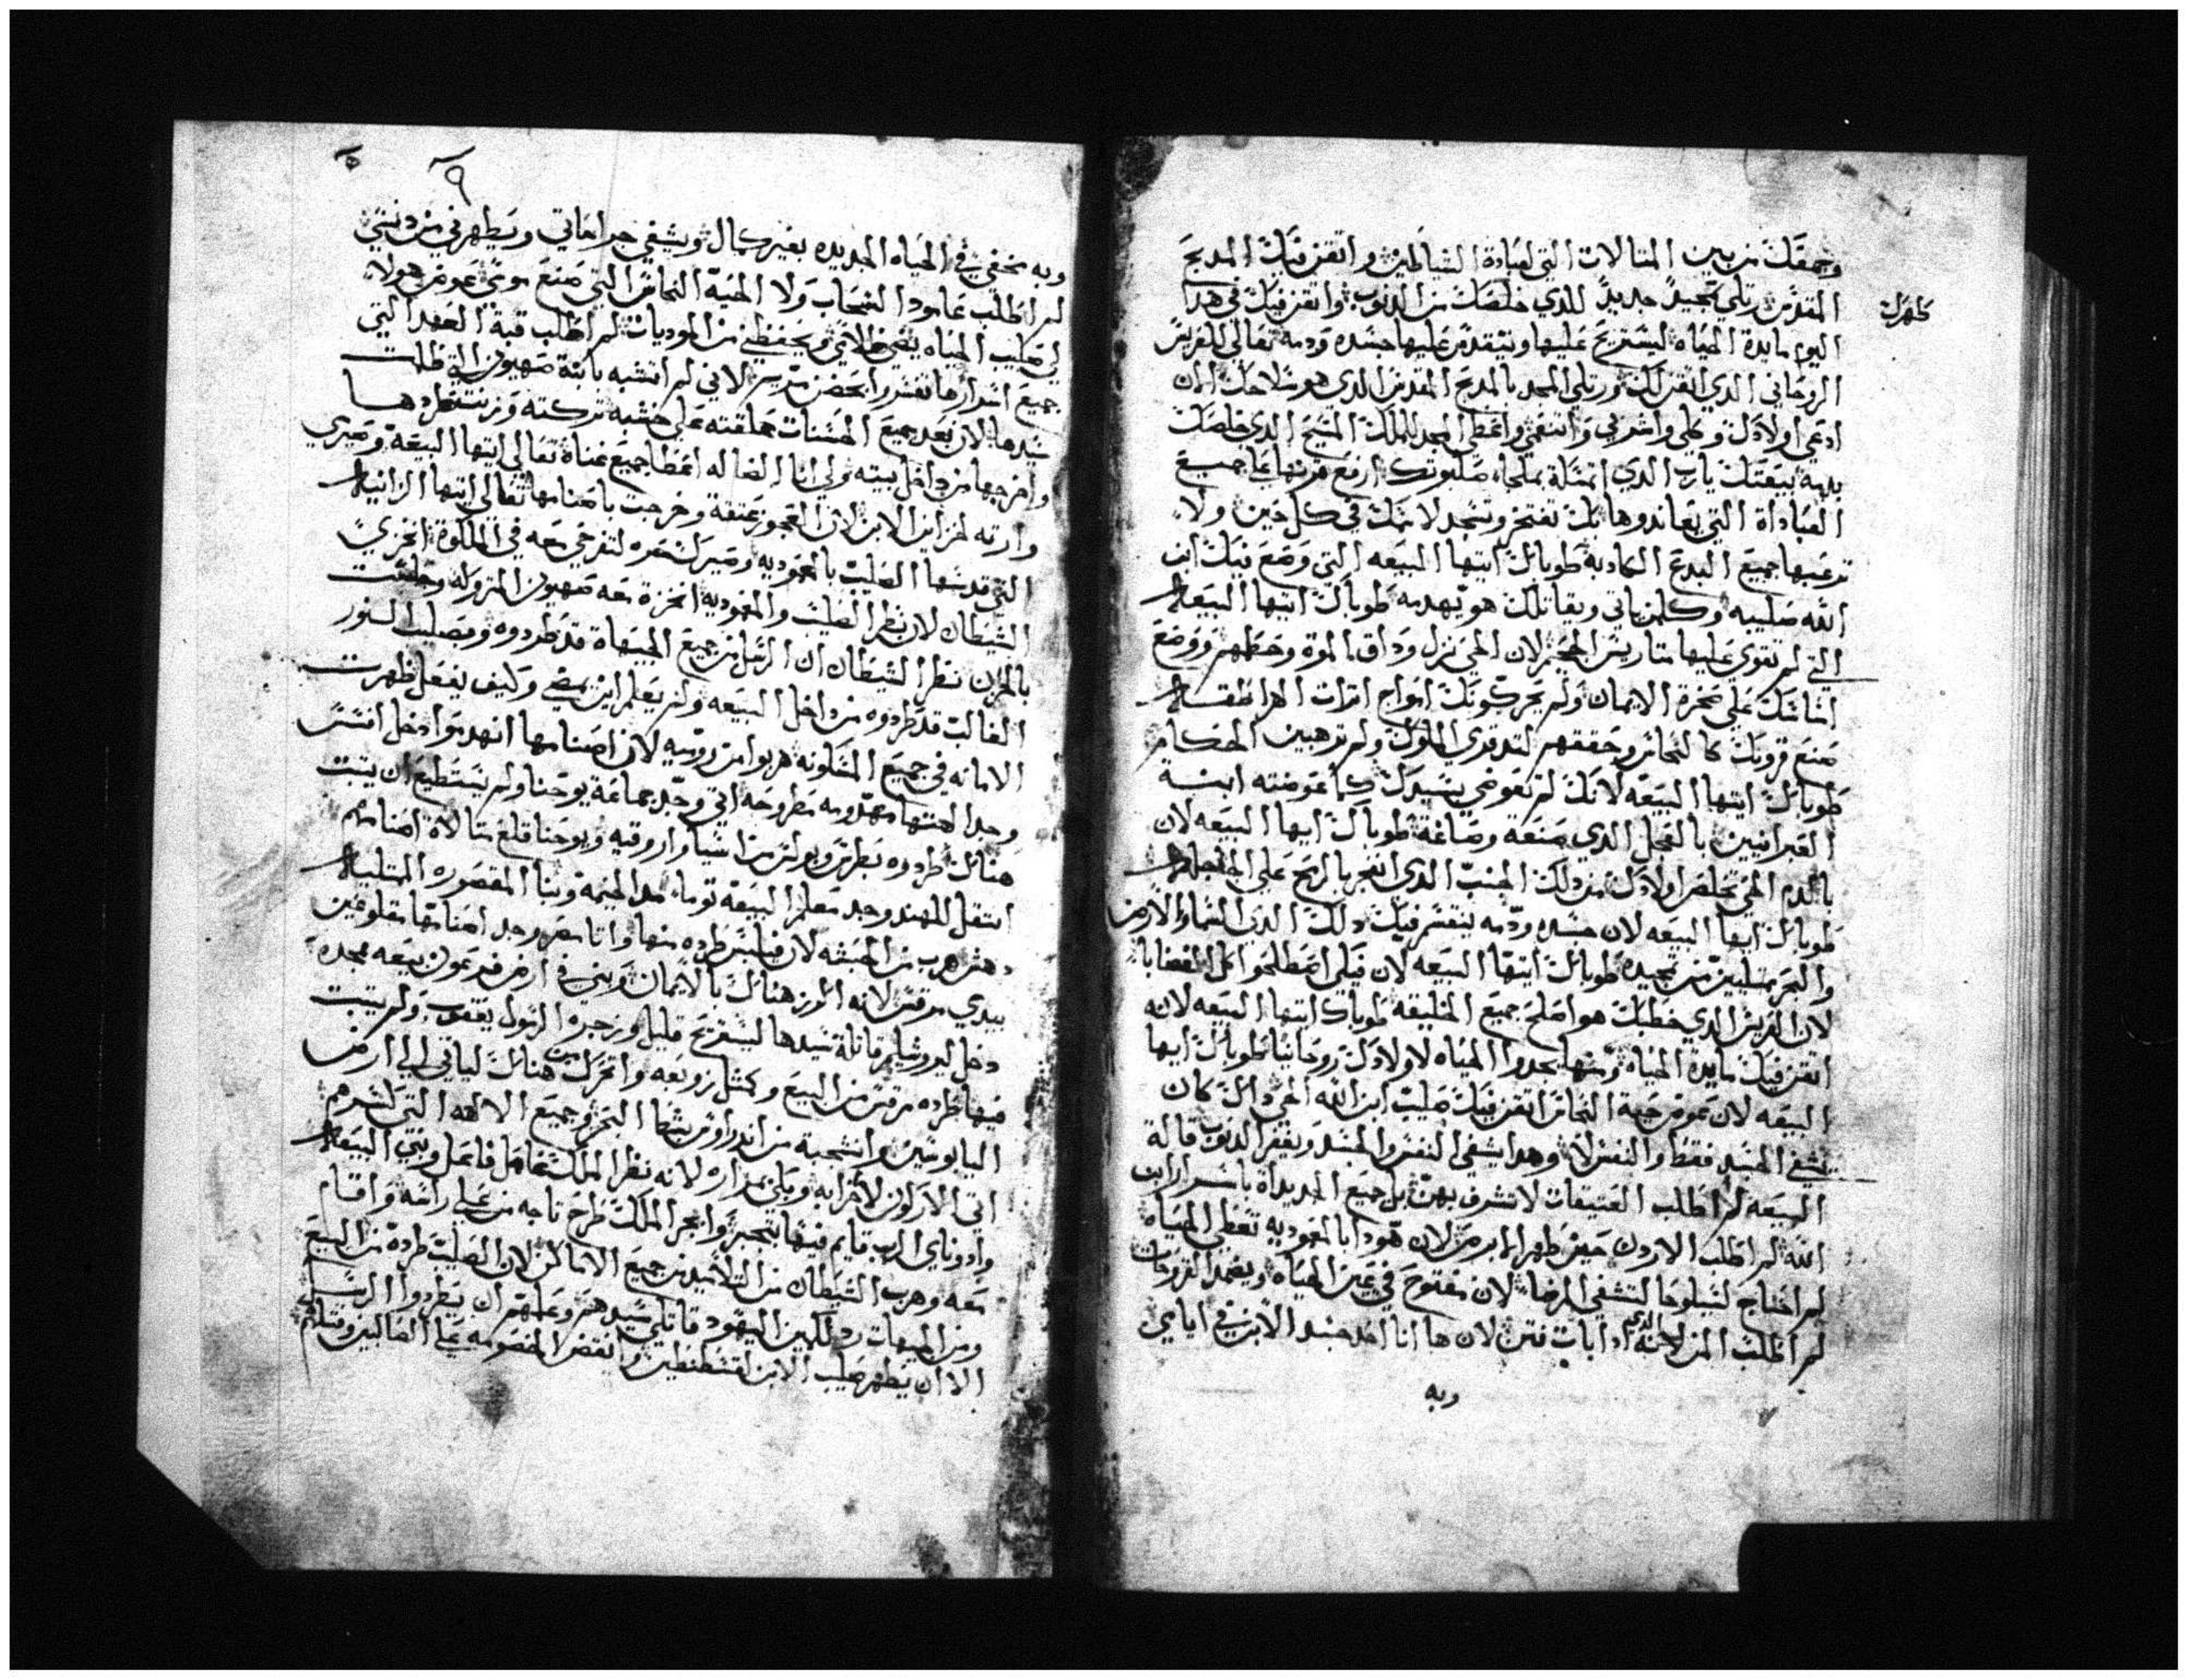 وجمعك من بين المتالات التي لعبادة الشياطين واتقن فيك المدبح
كلهرك
المقدس رتلي تمجيداً جديداً للدي خلصك من الدنوب واتقن فيك في هدا
اليوم مايدة الحياه ليستريح عليها ويتقدس عليها جسده ودمه تعالي للفردس
الروحاني الدي اتقن لك ورتلي المجد بالمدبح المقدس الدي هو سلاحك الان
ادعي اولادك وكلي واشربي وانتعمي واعطي المجد للملك المسيح الدي خلصك
بدمه بيعتك يارب الدي امتلة بملجاه صليبوتك ارفع قرنها علي جميع
العباداة التي يعاندوها بك تفتخر وتسجد لاسمك في كل حين ولا
ترعبها جميع البدع الكادبه طوباك ايتها البيعه التي وضع فيك ابن
الله صليبه وكلمن ياتي ويقاتلك هو يهدمه طوباك ايتها البيعه
التي لم تقوي عليها متاريس الجحيم لان الحي نزل وداق الموة وحطمهم ووضع
اساسك علي صخرة الايمان ولم يحركونك امواج امرات الهراطقه
صنع قرونك كالنحاس وحققهم لتدقدقي الملوك ولم ترهبين الحكام
طوباك ايتها البيعه لانك لم تعوضي بسيدك كما عوضته ابنة
العبرانيين بالعجل الدي صنعة وصاغة طوباك ايها البيعه لان
بالدم الحي تخلص اولادك من دلك الجنب الدي انفجر بالرمح علي الجلجله
طوباك ايها البيعه لان جسده ودمه يتقسم فيك دلك الدي السماء والارض
والبحر ممتليين من تمجيده طوباك ايتها البيعه لان فيك اصطلحوا كل الغضابا
لان العريس الدي خطبك هو اصلح جميع الخليقه طوباك ايتها البيعه لانه
اتقن فيك مايدة الحياه ومنها يجدوا الحياه لاولادك روحانيا طوباك ايها
البيعه لان عوض حية النحاس اتقن فيك صليب ابن الله الحي داك كان
يشفي الجسد فقط والنفس لا وهدا يشفي النفس والجسد ويغفر الدنوب قالة
البيعه لم اطلب العتيقات لا تشرق بهت بل جميع الجديداة باسرار ابن
الله لم اطلب الاردن حين طهر البرص لان هودا بالمعوديه تعطي الحياه
لم احتاج لشيلوحا لتشفي المرضا لان مفتوح في عين الحياه ويضمد القروحات
لم اطلب المن لانه الدي ادا بات فتن لان ها انا اخد جسد الابن في ايامي
وبه
٩
وبه نخفي في الحياه الجديده بغير كمال ويشفي جراحاتي ويطهرني من دنسي
لم اطلب عامود السحاب ولا الحية النحاس التي صنع موسي عوض هولاء
لي صليب الحياه يضي ظلامي ويحفظني من الموديات لم اطلب قبة العهد التي
جميع اسرارها تفسروا لان لم اتشبه بابنة صهيون التي ظلمت
سيدها لان بعد جميع الحسنات علقته علي خشبه تركته ومن بيتها طردها
واخرجها من داخل بيته ولي انا الضاله اعطا جميع غناة تعالي ايتها البيعة وصيري
وارته لخزاين الابن لان العجوز عتقة وخرجت باصنامها تعالي ايتها الزانيه
التي قدسها الصليب بالمعوديه وصيركي عروسه لتفرحي معه في الملكوة اخزي
الشيطان لان نظر الصليب والمعوديه انخزة معه صهيون المزدوله وجلست
بالحزن نظر الشيطان ان الرسل من جميع الجيهاة قد طردوه وبصليب النور
الغالب قد طردوه من داخل البيعه ولم يعلم اين يمضي وكيف يفعل ظهرت
الامانه في جميع المسكونه هربوا من روميه لان اصنامها انهدموا دخل افسس
وجد الهتها مهدومه مطروحه اتي وجد جماعة يوحنا ولم يستطيع ان يتبت
هناك طردوه بطرس وبولس من اسيا واروقيه ويوحنا قلع متالاة اصنامهم
انتقل للهند وجد معلم البيعة توما مد الخيمة وبنا المقصوره الممتليه
دهش هرب من الحبشه لان فيلبس طرده منها واتا مصر وجد اصنامها مقلوعين
بيدي مرقس لانه اكرز هناك بالايمان وبني في ارض فرعون بيعه ممجده
دخل ليروشليم قاتلة سيدها ليستريح قليل وزجره الرسول يعقوب ولم يتبت
فيها طرده مرقس من البيع وكمتل زوبعه واتحرك من هناك لياتي الي ارض
اليابوسيين وانسجبة من اندراوس بشط البحر وجميع الالهه التي كسرهم
اتي الاراون لاقرابه ويبكي مراره لانه نظر الملك تغافل فاعل وبني البيعه
وادوناي الرب قايم فيها يتجبر وابجر الملك طرح تاجه من علي راسه واقام
معه وهرب الشيطان من التلاميد من جميع الاماكن لان الصليب طرده من البيع
ومن الجيهات رد لكهن اليهود قاتلي سيدهم وعلمهم ان يطردوا الرسل
الا ان يظهر صليب الابن لقسطنطين وانقض الخصومه علي الضالين وقتلهم